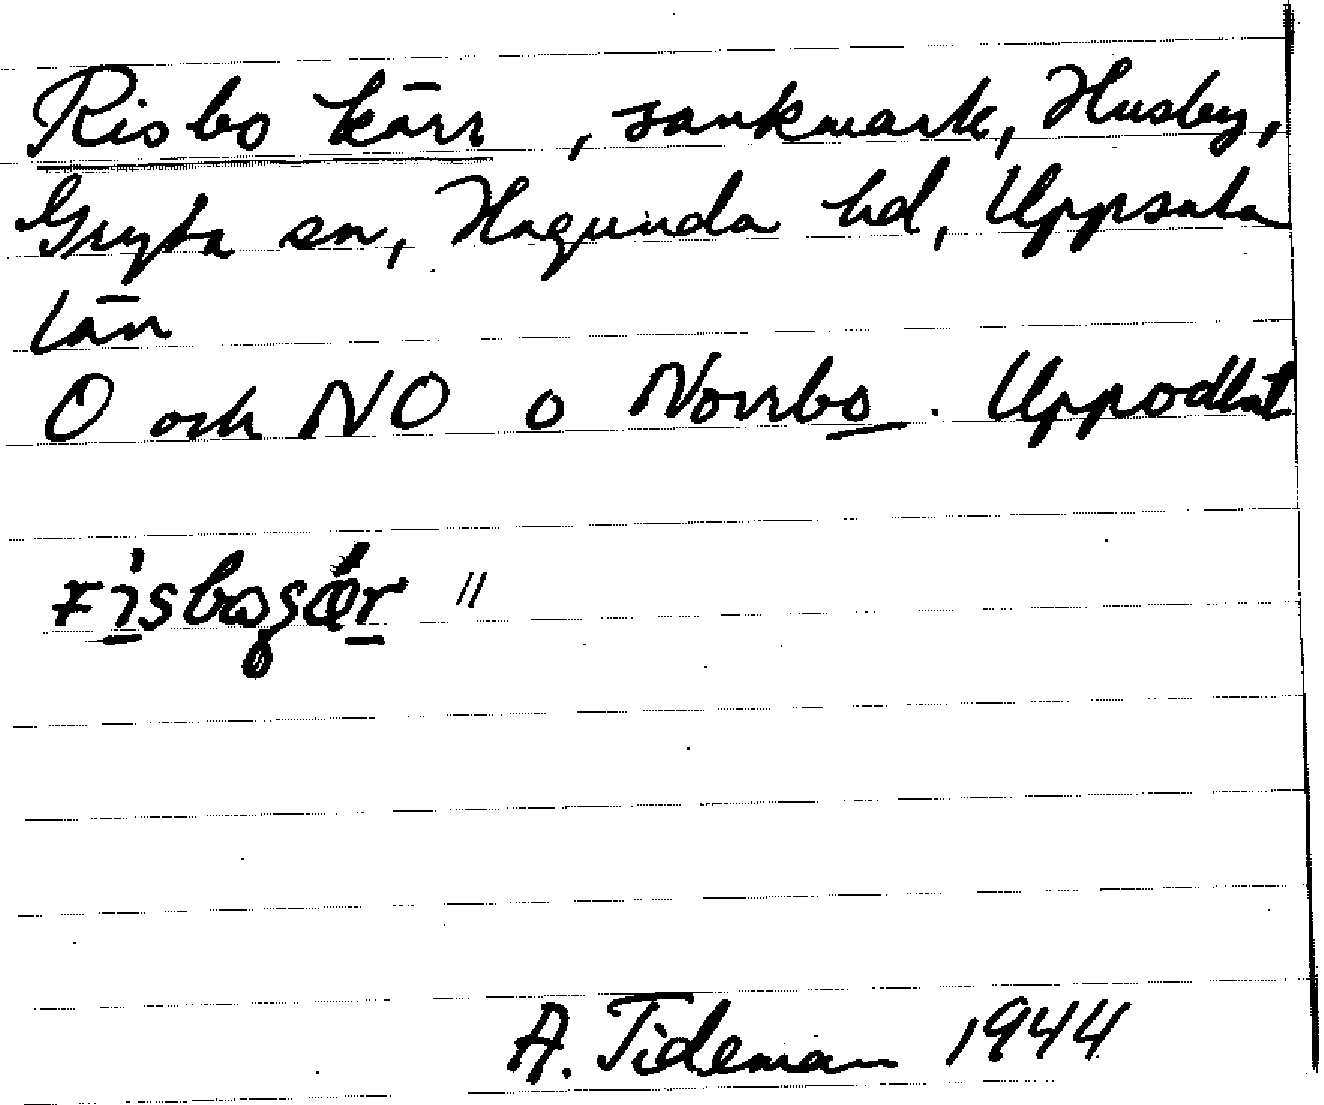 Risbo kärr, sankmark, Husby,
Gryta sn, Hagunda hd, Uppsala
län
O och NO o Norrbo. Uppodlat
"
A. Tideman 1944